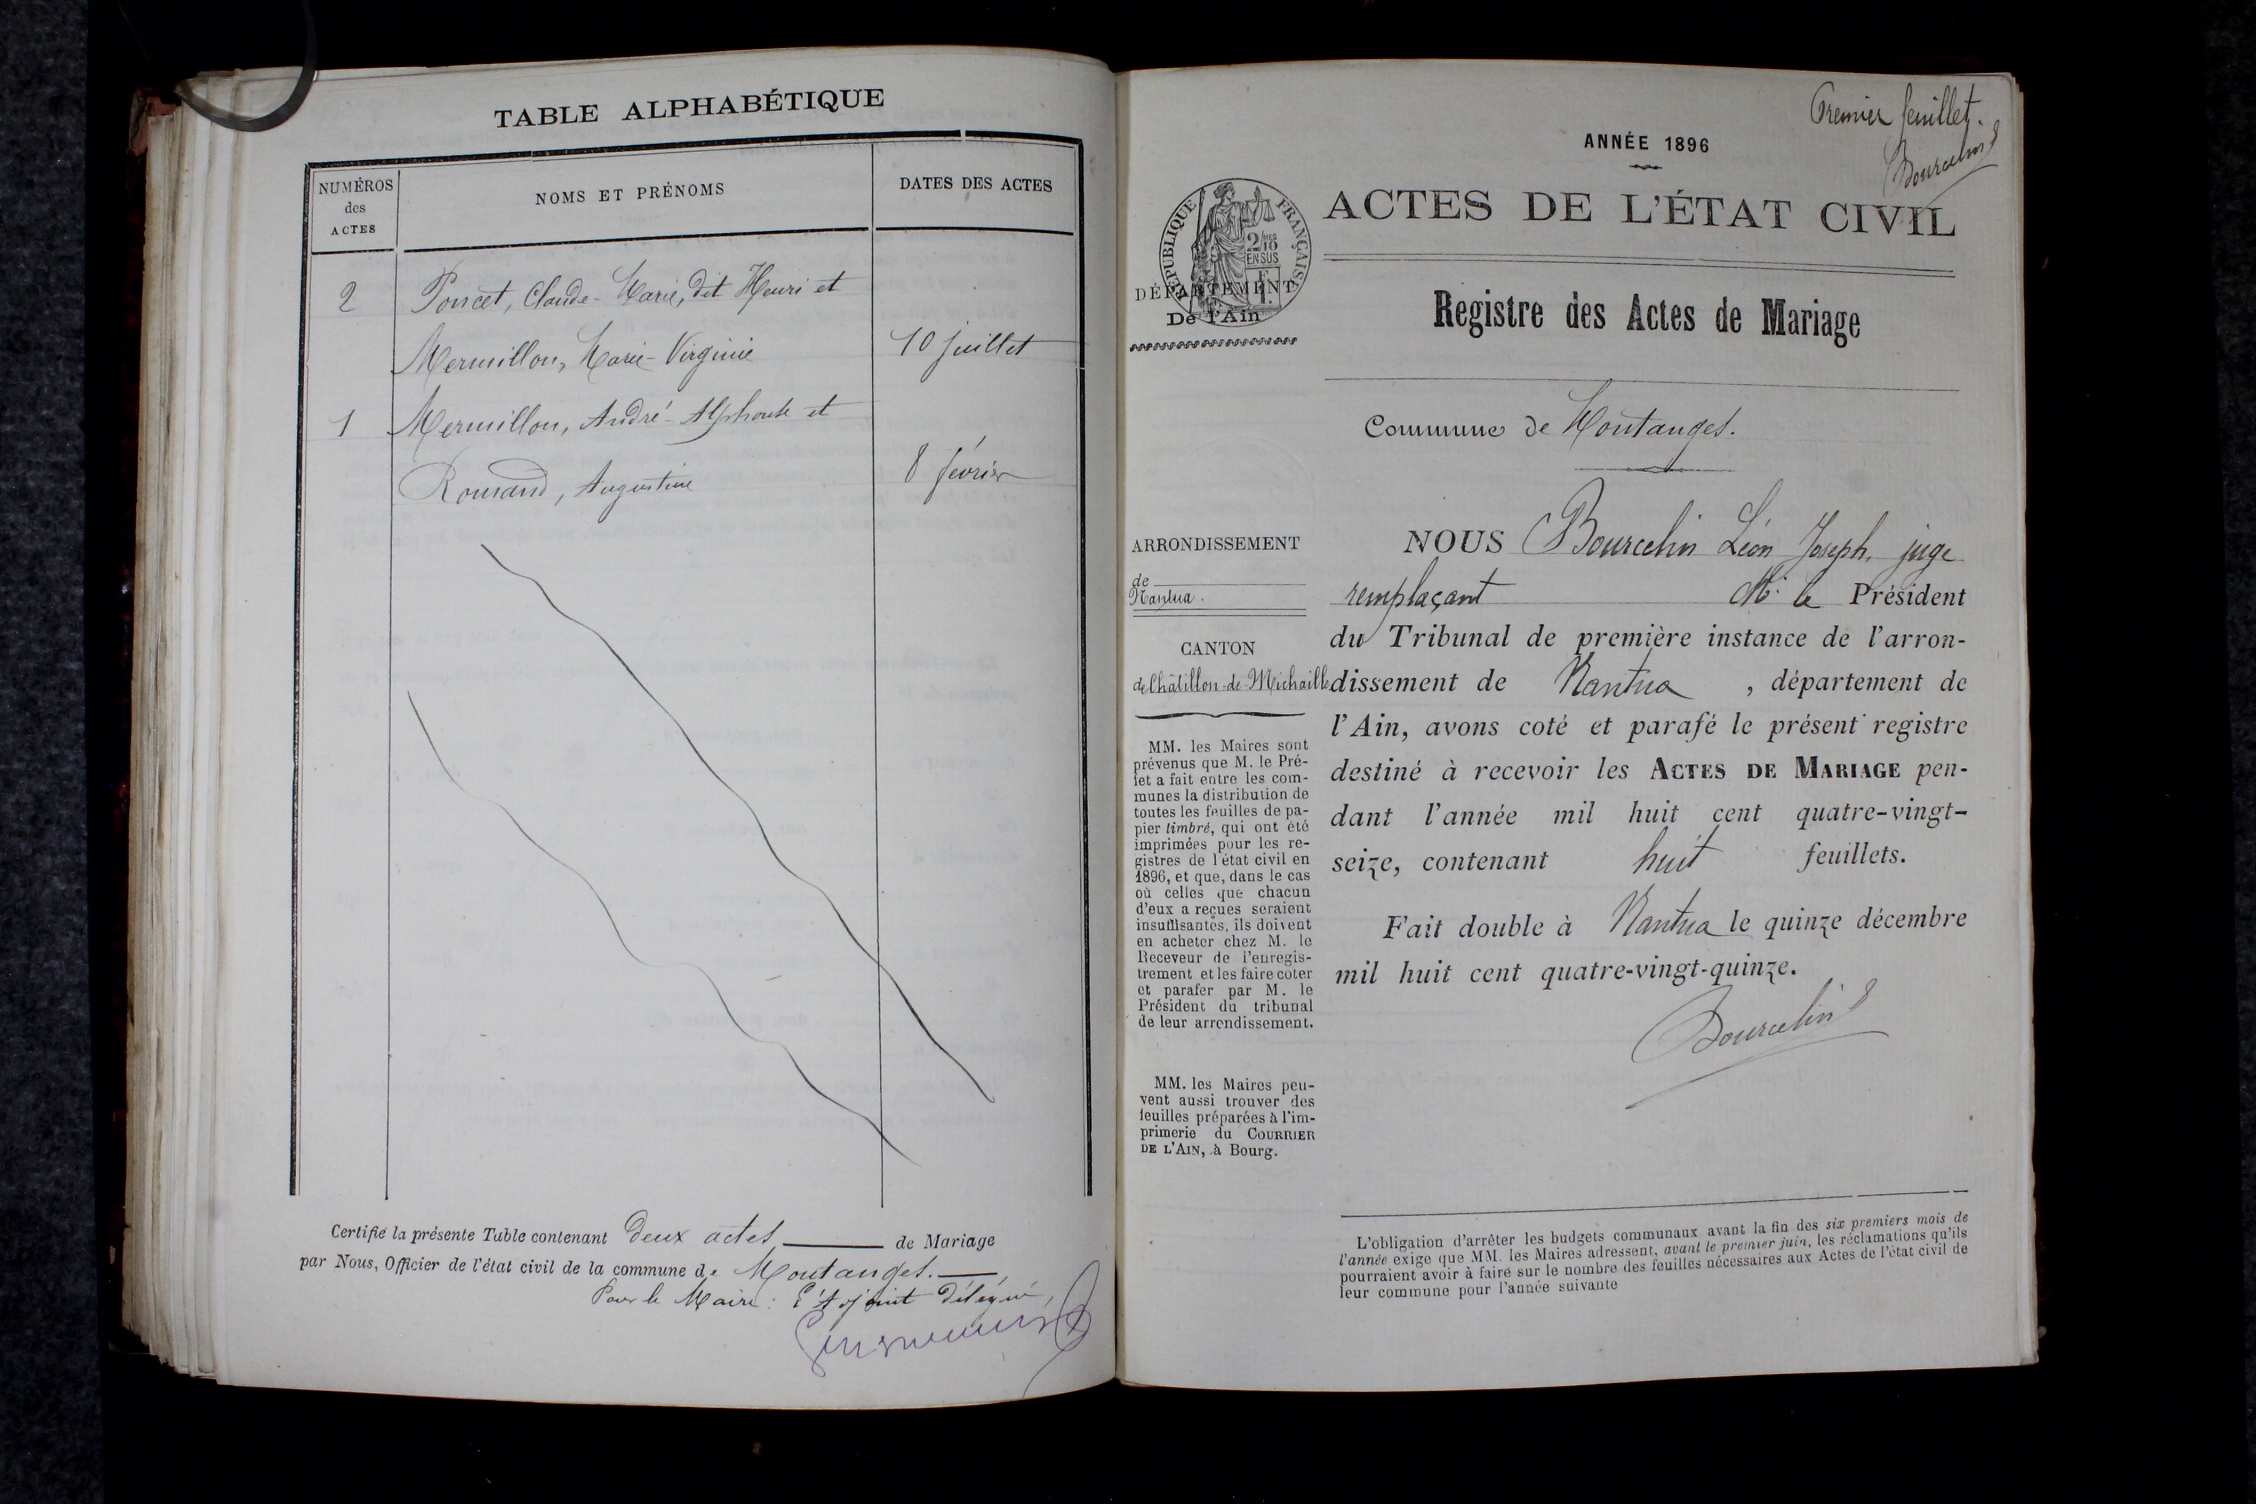 TABLE ALPHABÉTIQUE
NUMÉROS
des
ACTES
NOMS ET PRÉNOMS
DATES DES ACTES
2 Poncet, Claude-Marie, dit Henri et
Mermillon, Marie-Virginie 10 juillet
1 Mermillon, André-Alphonse et
Romand, Augustine 8 février
Certifié la présente Table contenant deux actes de Mariage
par Nous, Officier de l'état civil de la commune de Montanges.
Pour le Maire: l'Adjoint délégué,
Premier feuillet.
Bourcelin
ANNÉE 1896
ACTES DE L'ÉTAT CIVIL
RÉPUBLIQUE FRANÇAISE
2/10
EN SUS
DÉPARTEMENT
De l'Ain
Registre des Actes de Mariage
Commune de Montanges.
ARRONDISSEMENT
de
Nantua.
CANTON
de Châtillon-de-Michaille
MM. les Maires sont
prévenus que M. le Pré-
fet a fait entre les com-
munes la distribution de
toutes les feuilles de pa-
pier timbré, qui ont été
imprimées pour les re-
gistres de l'état civil en
1896, et que, dans le cas
où celles que chacun
d'eux a reçues seraient
insuffisantes, ils doivent
en acheter chez M. le
Receveur de l'enregis-
trement et les faire coter
et parafer par M. le
Président du tribunal
de leur arrondissement.
MM. les Maires peu-
vent aussi trouver des
feuilles préparées à l'im-
primerie du COURRIER
DE L'AIN, à Bourg.
NOUS Bourcelin Léon Joseph, juge
remplaçant Mr. le Président
du Tribunal de première instance de l'arron-
dissement de Nantua, département de
l'Ain, avons coté et parafé le présent registre
destiné à recevoir les ACTES DE MARIAGE pen-
dant l'année mil huit cent quatre-vingt-
seize, contenant huit feuillets.
Fait double à Nantua le quinze décembre
mil huit cent quatre-vingt-quinze.
Bourcelin
L'obligation d'arrêter les budgets communaux avant la fin des six premiers mois de
l'année exige que MM. les Maires adressent, avant le premier juin, les réclamations qu'ils
pourraient avoir à faire sur le nombre des feuilles nécessaires aux Actes de l'état civil de
leur commune pour l'année suivante